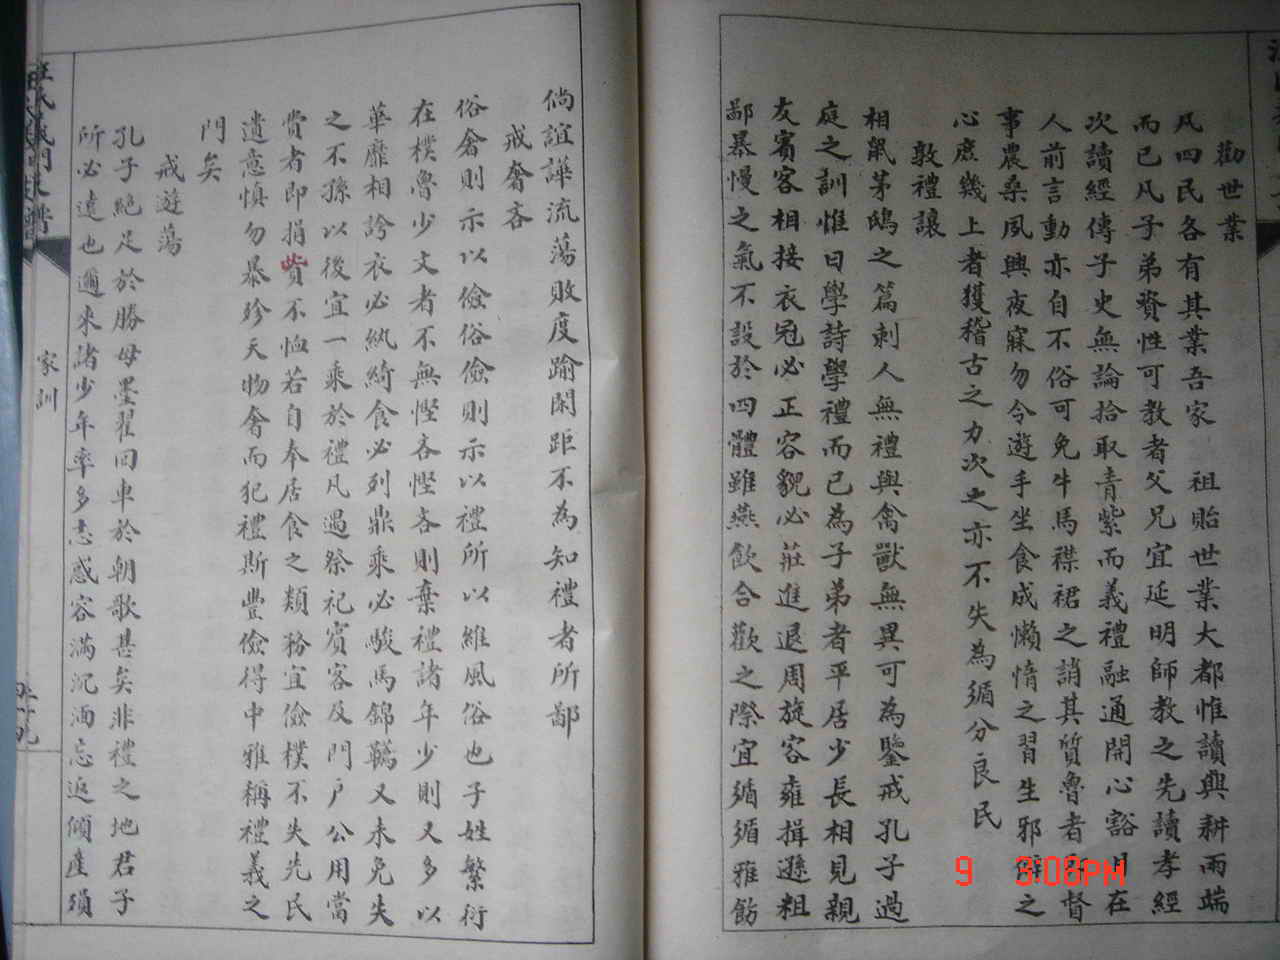 勸世業
凡四民各有其業吾家 祖貽世業大都惟讀與耕兩端
而已凡子弟資性可教者父兄宜延明師教之先讀孝經
次讀經傳子史無論拾取青紫而義禮融通開心豁目在
人前言動亦自不俗可免牛馬襟裾之誚其質魯者督
事農桑夙興夜寐勿令遊手坐食成懶惰之習生邪僻之
心庶幾上者獲稽古之力次之亦不失為循分良民
敦禮讓
相鼠茅鴟之篇刺人無禮與禽獸無異可為鑒戒孔子過
庭之訓惟曰學詩學禮而已為子弟者平居少長相見親
友賓客相接衣冠必正容貌必莊進退周旋容雍揖遜粗
鄙暴慢之氣不設於四體雖燕飲合歡之際宜循循雅飭
倘諠譁流蕩敗度踰閑詎不為知禮者所鄙
戒奢吝
俗奢則示以儉俗儉則示以禮所以維風俗也子姓繁衍
在樸魯少文者不無慳吝慳吝則棄禮諸年少則又多以
華靡相誇衣必紈綺食必列鼎乘必駿馬錦韉又未免失
之不孫以後宜一乘於禮凡遇祭祀賓客及門戶公用當
費者即捐貲不恤若自奉居食之類務宜儉樸不失先民
遺意慎勿暴殄天物奢而犯禮斯豐儉得中雅稱禮義之
門矣
戒遊蕩
孔子絕足於勝母墨翟回車於朝歌甚矣非禮之地君子
所必遠也邇來諸少年率多志惑容滿沉湎忘返傾產殞
汪氏義門大譜
家訓
9 3:08PM